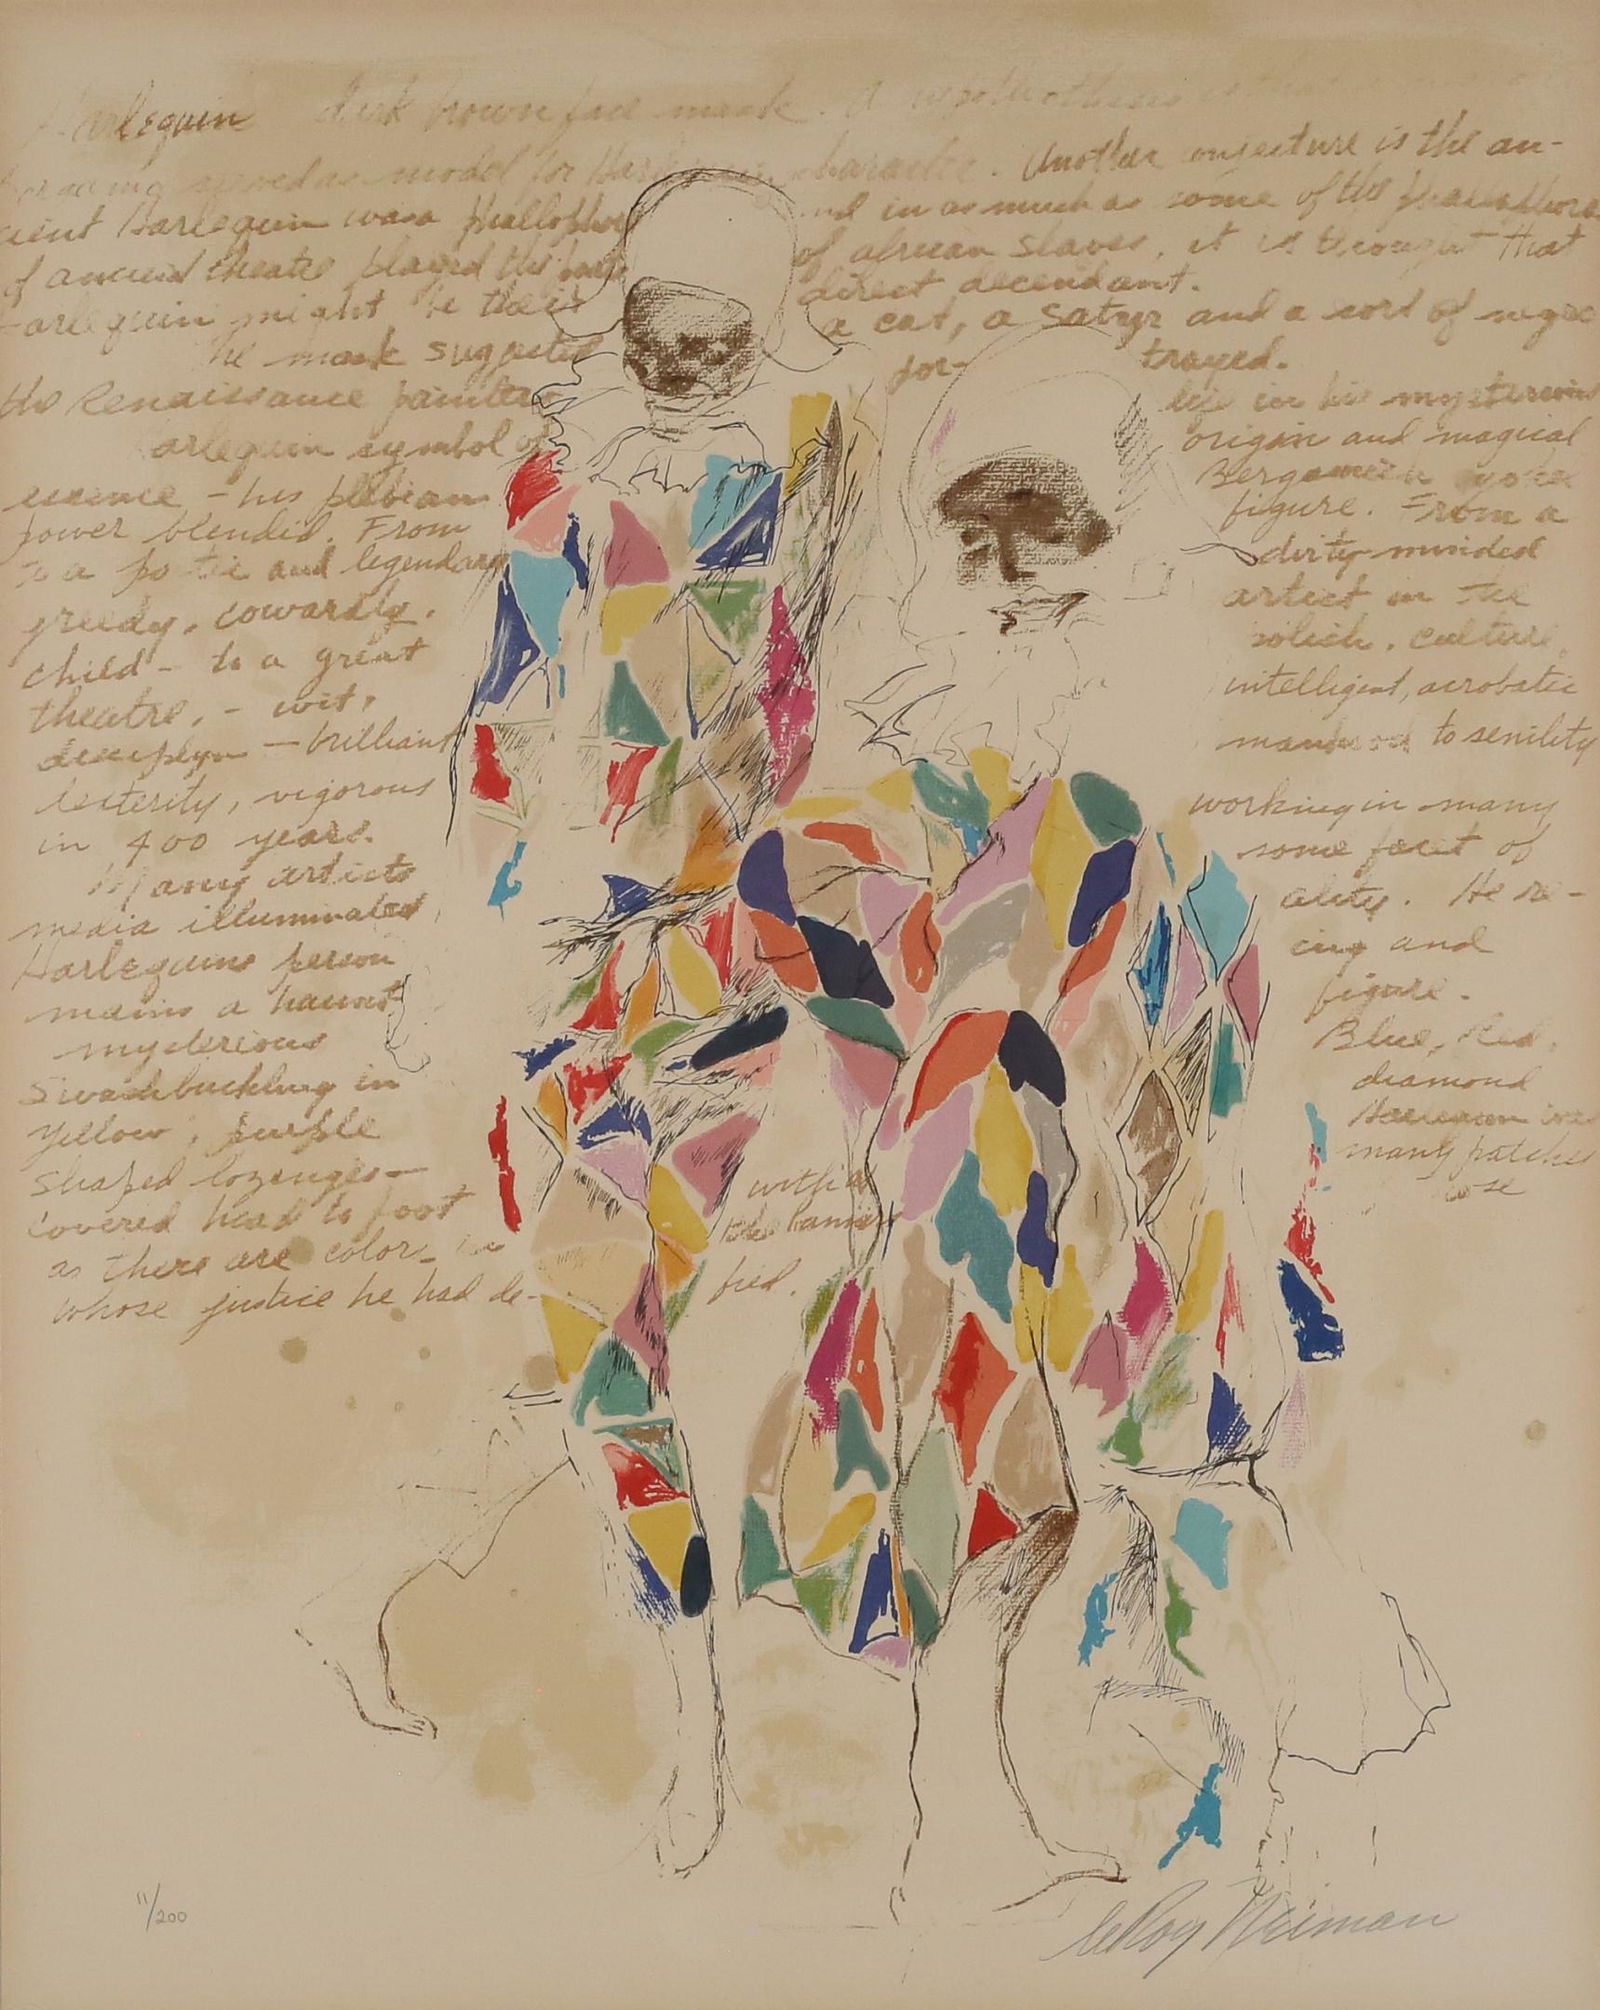 Harlequin dark brown face mask. A
served as model for Harlequin character. Another conjecture is the an-
cient Harlequin was a phallophore and in as much as some of the phallophores
of ancient theatre played the part of african slaves, it is thought that
Harlequin might be their direct decendant.
The mask suggested a cat, a satyr and a sort of
the Renaissance painters por- trayed.
Harlequin symbol of life in his mysterious
essence - his plebian origin and magical
power blended. From Bergamesk
to a poetic and legendary figure. From a
greedy, cowardly, dirty minded
child - to a great artist in the
theatre, - wit, culture,
brilliant intelligent, acrobatic
dexterity, vigorous manhood to senility
in 400 years.
Many artists working in many
media illuminated some facet of
Harlequins person ality. He re-
mains a haunt cing and
mysterious figure.
Swashbuckling in Blue, Red,
Yellow, purple diamond
shaped lozenges- Harlequin was
covered head to foot with as many patches
as there are color
whose justice he had de- fied.
11/200 LeRoy Neiman